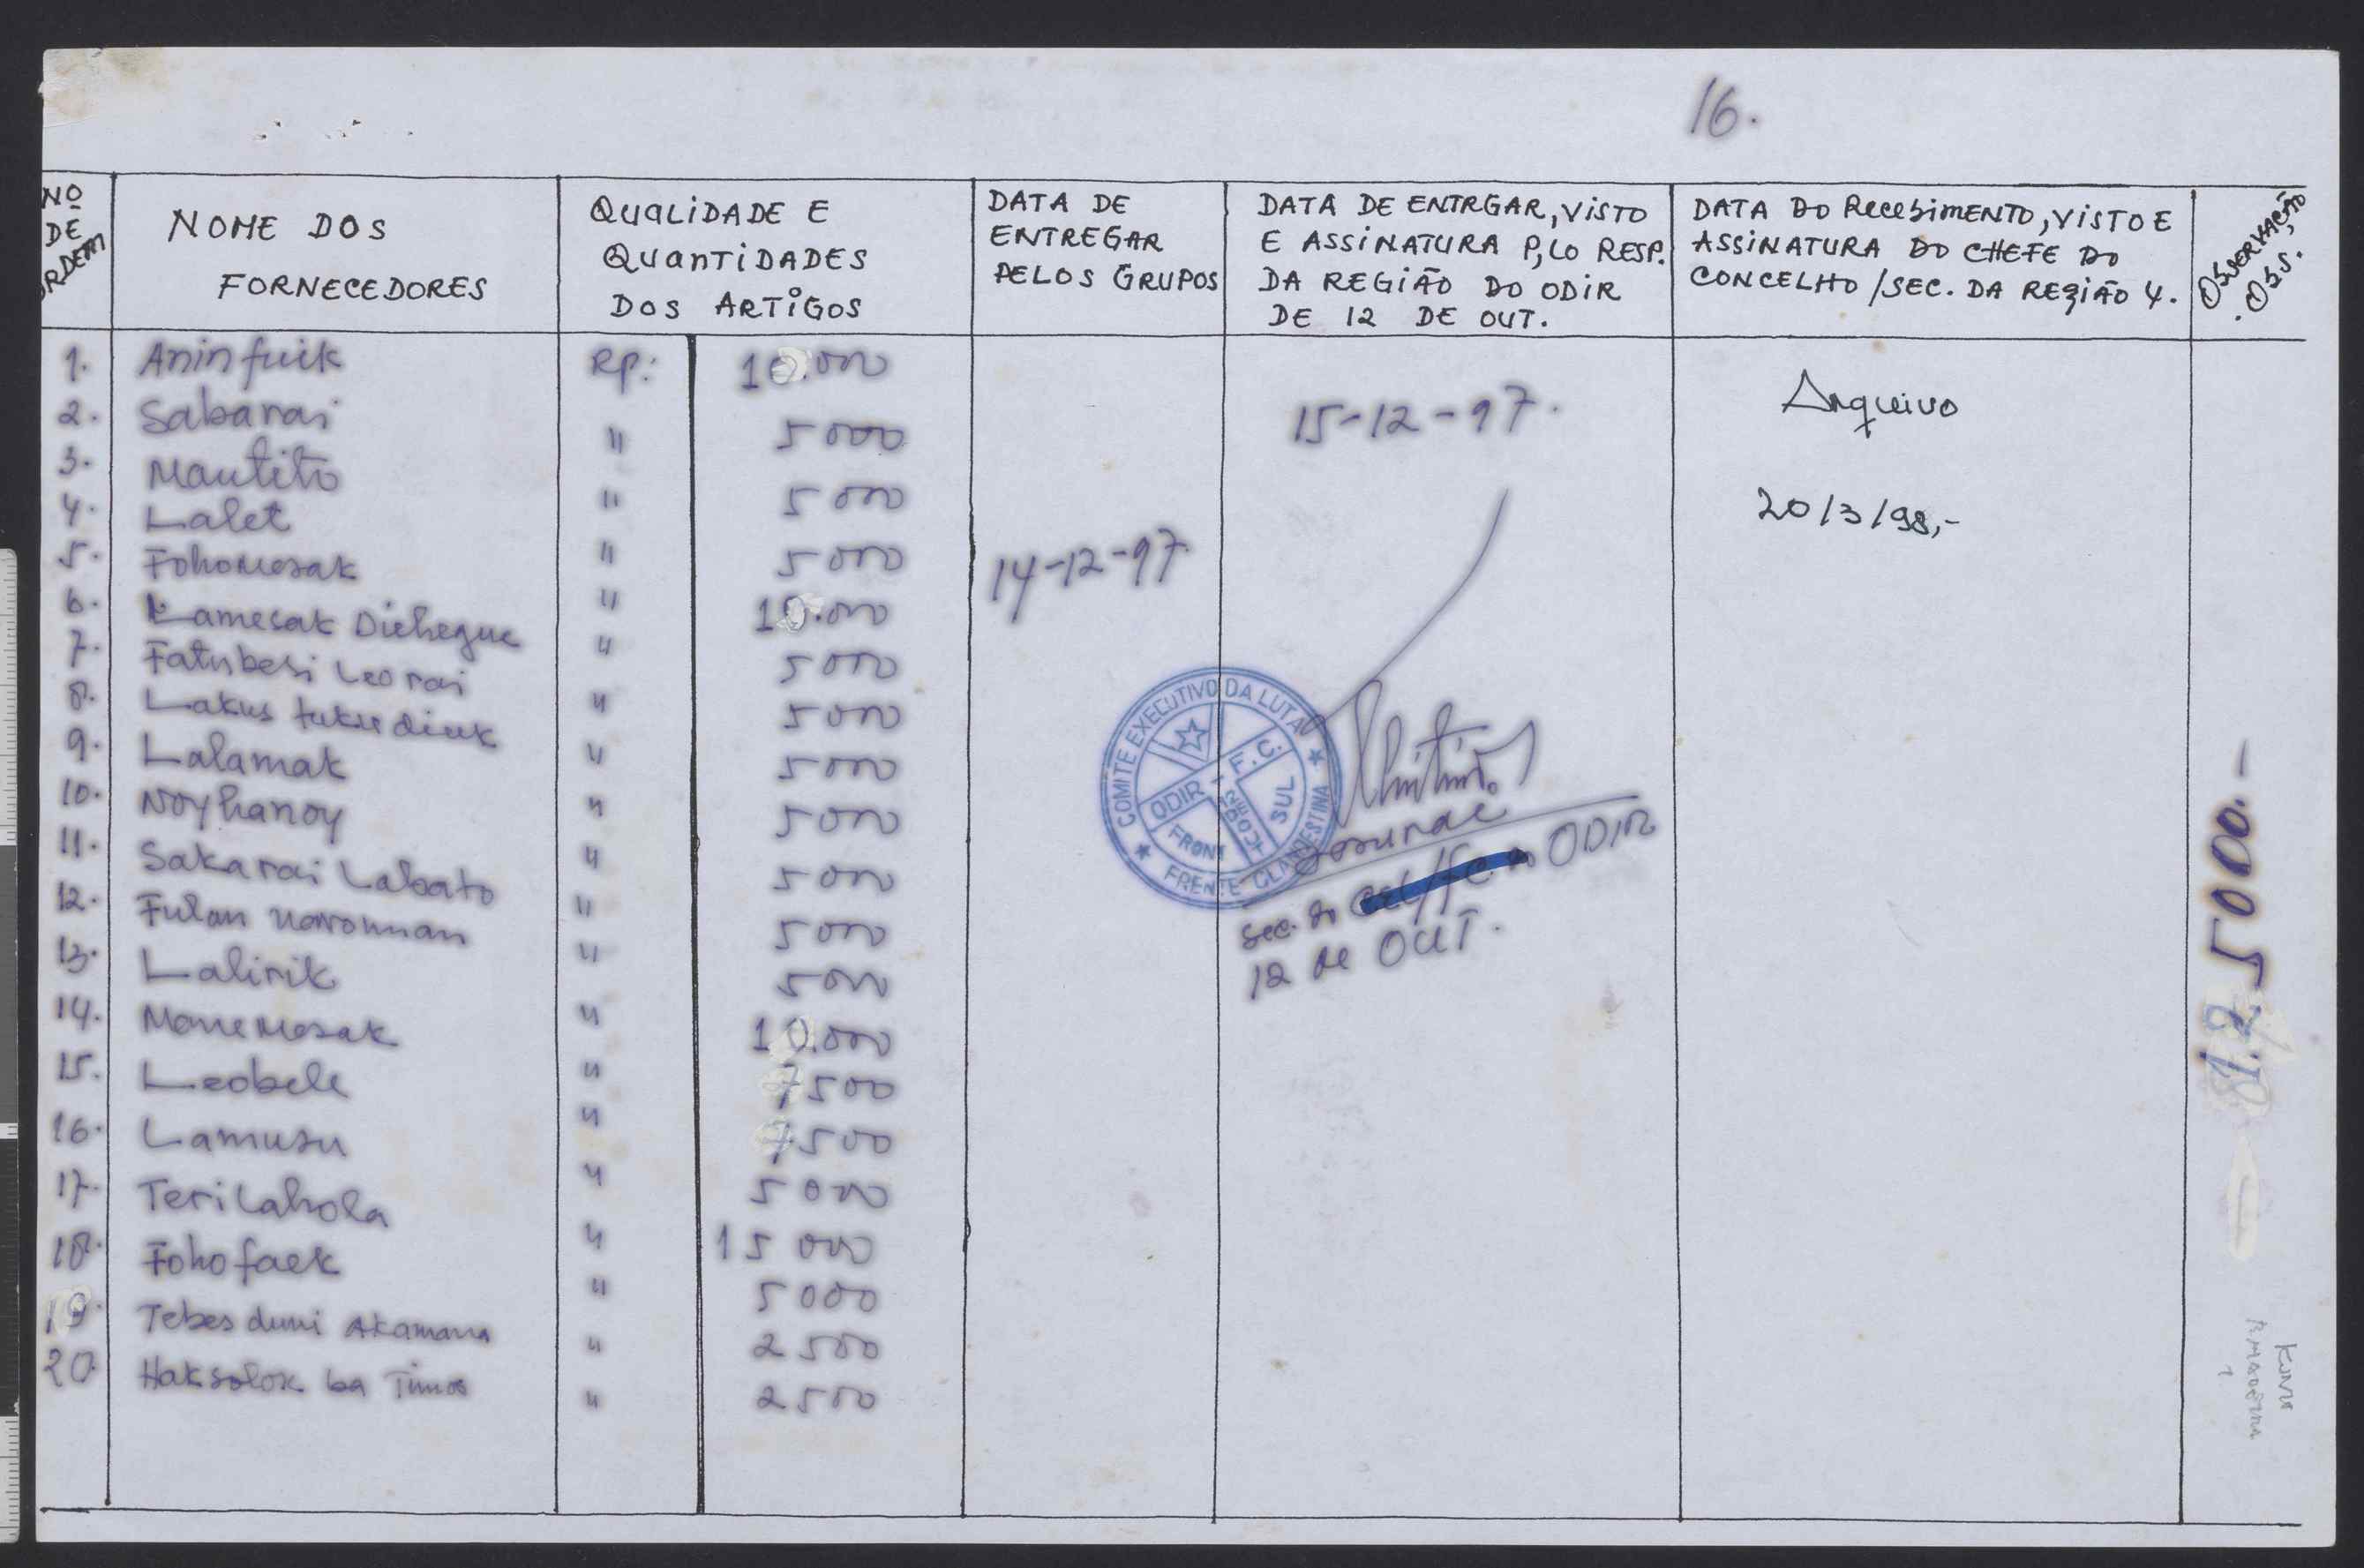 16.
Nº DE ORDEM
NOME DOS FORNECEDORES
QUALIDADE E QUANTIDADES DOS ARTIGOS
DATA DE ENTREGAR PELOS GRUPOS
DATA DE ENTRGAR, VISTO E ASSINATURA P,LO RESP. DA REGIÃO DO ODIR DE 12 DE OUT.
DATA DO RECEBIMENTO, VISTO E ASSINATURA DO CHEFE DO CONCELHO / SEC. DA REGIÃO 4.
OBSERVAÇÃO, OBS.
1. Aninfuik Rp: 10.000
2. Sabarai " 5000
3. Mautito " 5000
4. Lalet " 5000
5. Fohomesak " 10.000
6. Lamesak Diehegue " 5000
7. Fatubesi Leorai " 5000
8. Lakus tukur dikuk " 5000
9. Lalamak " 5000
10. Noyhanoy " 5000
11. Sakarai Labato " 5000
12. Fulan " 5000
13. Lalirik " 10.000
14. Manemesak " 7500
15. Leobele " 7500
16. Lamusu " 5000
17. Terilahola " 15 000
18. Fohofaek " 5000
19. Tebes duni Akamana " 2500
20. Haksolok ba Timor " 2500
14-12-97
15-12-97.
COMITE EXECUTIVO DA LUTA
FRENTE CLANDESTINA
ODIR - F.C.
FRONT
SUL
Sec. do ODIR
12 de OUT.
Arquivo
20/3/98,-
12 5000.-